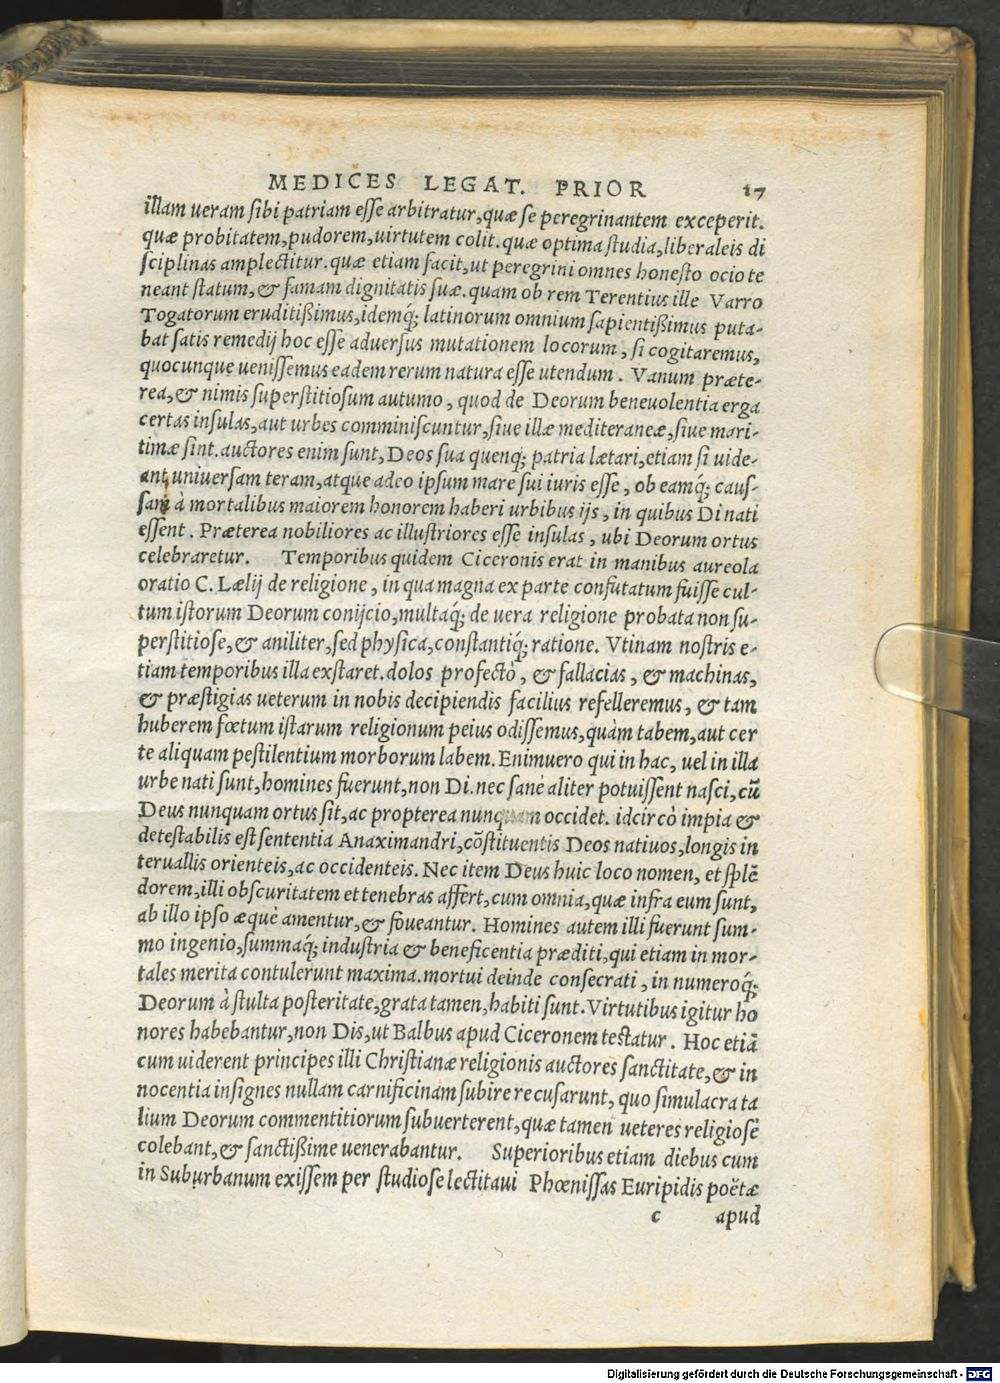 MEDICES LEGAT. PRIOR 17
illam ueram sibi patriam esse arbitratur,quæ se peregrinantem exceperit.
quæ probitatem,pudorem,uirtutem colit.quæ optima studia,liberaleis di
sciplinas amplectitur.quæ etiam facit,ut peregrini omnes honesto ocio te
neant statum,& famam dignitatis suæ.quam ob rem Terentius ille Varro
Togatorum eruditißimus,idemq́; latinorum omnium sapientißimus puta-
bat satis remedij hoc esse aduersus mutationem locorum, si cogitaremus,
quocunque uenissemus eadem rerum natura esse utendum. Vanum præte-
rea,& nimis superstitiosum autumo, quod de Deorum beneuolentia erga
certas insulas,aut urbes comminiscuntur,siue illæ mediteraneæ,siue mari-
timæ sint.auctores enim sunt,Deos sua quenq; patria lætari,etiam si uide-
ant uniuersam teram,atque adeo ipsum mare sui iuris esse, ob eamq́; caus-
sam à mortalibus maiorem honorem haberi urbibus ijs, in quibus Di nati
essent. Præterea nobiliores ac illustriores esse insulas, ubi Deorum ortus
celebraretur. Temporibus quidem Ciceronis erat in manibus aureola
oratio C. Lælij de religione, in qua magna ex parte confutatum fuisse cul-
tum istorum Deorum conijcio,multaq́; de uera religione probata non su-
perstitiose,& aniliter,sed physica,constantiq́; ratione. Vtinam nostris e-
tiam temporibus illa exstaret.dolos profectò, & fallacias, & machinas,
& præstigias ueterum in nobis decipiendis facilius refelleremus, & tam
huberem fœtum istarum religionum peius odissemus,quàm tabem,aut cer
te aliquam pestilentium morborum labem. Enimuero qui in hac, uel in illa
urbe nati sunt,homines fuerunt,non Di.nec sanè aliter potuissent nasci,cū
Deus nunquam ortus sit,ac propterea nunquam occidet. idcircò impia &
detestabilis est sententia Anaximandri,cõstituentis Deos natiuos,longis in
teruallis orienteis,ac occidenteis. Nec item Deus huic loco nomen, et splē
dorem,illi obscuritatem et tenebras affert,cum omnia,quæ infra eum sunt,
ab illo ipso æquè amentur,& foueantur. Homines autem illi fuerunt sum-
mo ingenio,summaq́; industria & beneficentia præditi,qui etiam in mor-
tales merita contulerunt maxima.mortui deinde consecrati, in numeroq́;
Deorum à stulta posteritate,grata tamen,habiti sunt. Virtutibus igitur ho
nores habebantur,non Dis,ut Balbus apud Ciceronem testatur. Hoc etiā
cum uiderent principes illi Christianæ religionis auctores sanctitate,& in
nocentia insignes nullam carnificinam subire recusarunt, quo simulacra ta
lium Deorum commentitiorum subuerterent,quæ tamen ueteres religiosè
colebant,& sanctißime uenerabantur. Superioribus etiam diebus cum
in Suburbanum exissem per studiose lectitaui Phœnissas Euripidis poëtæ
c apud
Digitalisierung gefördert durch die Deutsche Forschungsgemeinschaft - DFG